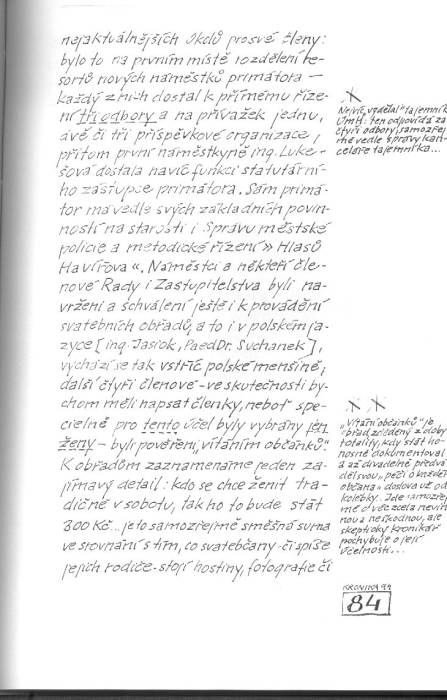 nejaktuálnějších úkolů pro své členy:
bylo to na prvním místě rozdělení re-
sortů nových náměstků primátora —
každý z nich dostal k přímému říze-
ní tři odbory a na přívažek jednu,
dvě či tři příspěvkové organizace,
přitom první náměstkyně ing. Luke-
šová dostala navíc funkci statutární-
ho zástupce primátora. Sám primá-
tor má vedle svých základních povin-
ností na starosti i Správu městské
policie a metodické řízení » Hlasů
Havířova «. Náměstci a někteří čle-
nové Rady i Zastupitelstva byli na-
vrženi a schváleni ještě i k provádění
svatebních obřadů, a to i v polském ja-
zyce [ing. Jasiok, PaedDr. Suchanek],
vychází se tak vstříc polské menšině;
další čtyři členové - ve skutečnosti by-
chom měli napsat členky, neboť spe-
cielně pro tento účel byly vybrány jen
ženy - byli pověřeni „vítáním občánků."
K obřadům zaznamenáme jeden za-
jímavý detail: kdo se chce ženit tra-
dičně v sobotu, tak ho to bude stát
300 Kč... je to samozřejmě směšná suma
ve srovnání s tím, co svatebčany - či spíše
jejich rodiče - stojí hostiny, fotografie či
X
Nejvíc „vydělal" tajemník
ÚmH: ten odpovídá za
čtyři odbory, samozřej-
mě vedle správy kan-
celáře tajemníka...
X X
„Vítání občánků" je
obřad zděděný z doby
totality, kdy stát ho-
nosně dokumentoval
a až divadelně předvá-
děl svou „péči o každého
občana" doslova už od
kolébky. Jde samozřej-
mě o věc zcela nevin-
nou a neškodnou, ale
skeptický kronikář
pochybuje o její
účelnosti...
KRONIKA 99
84